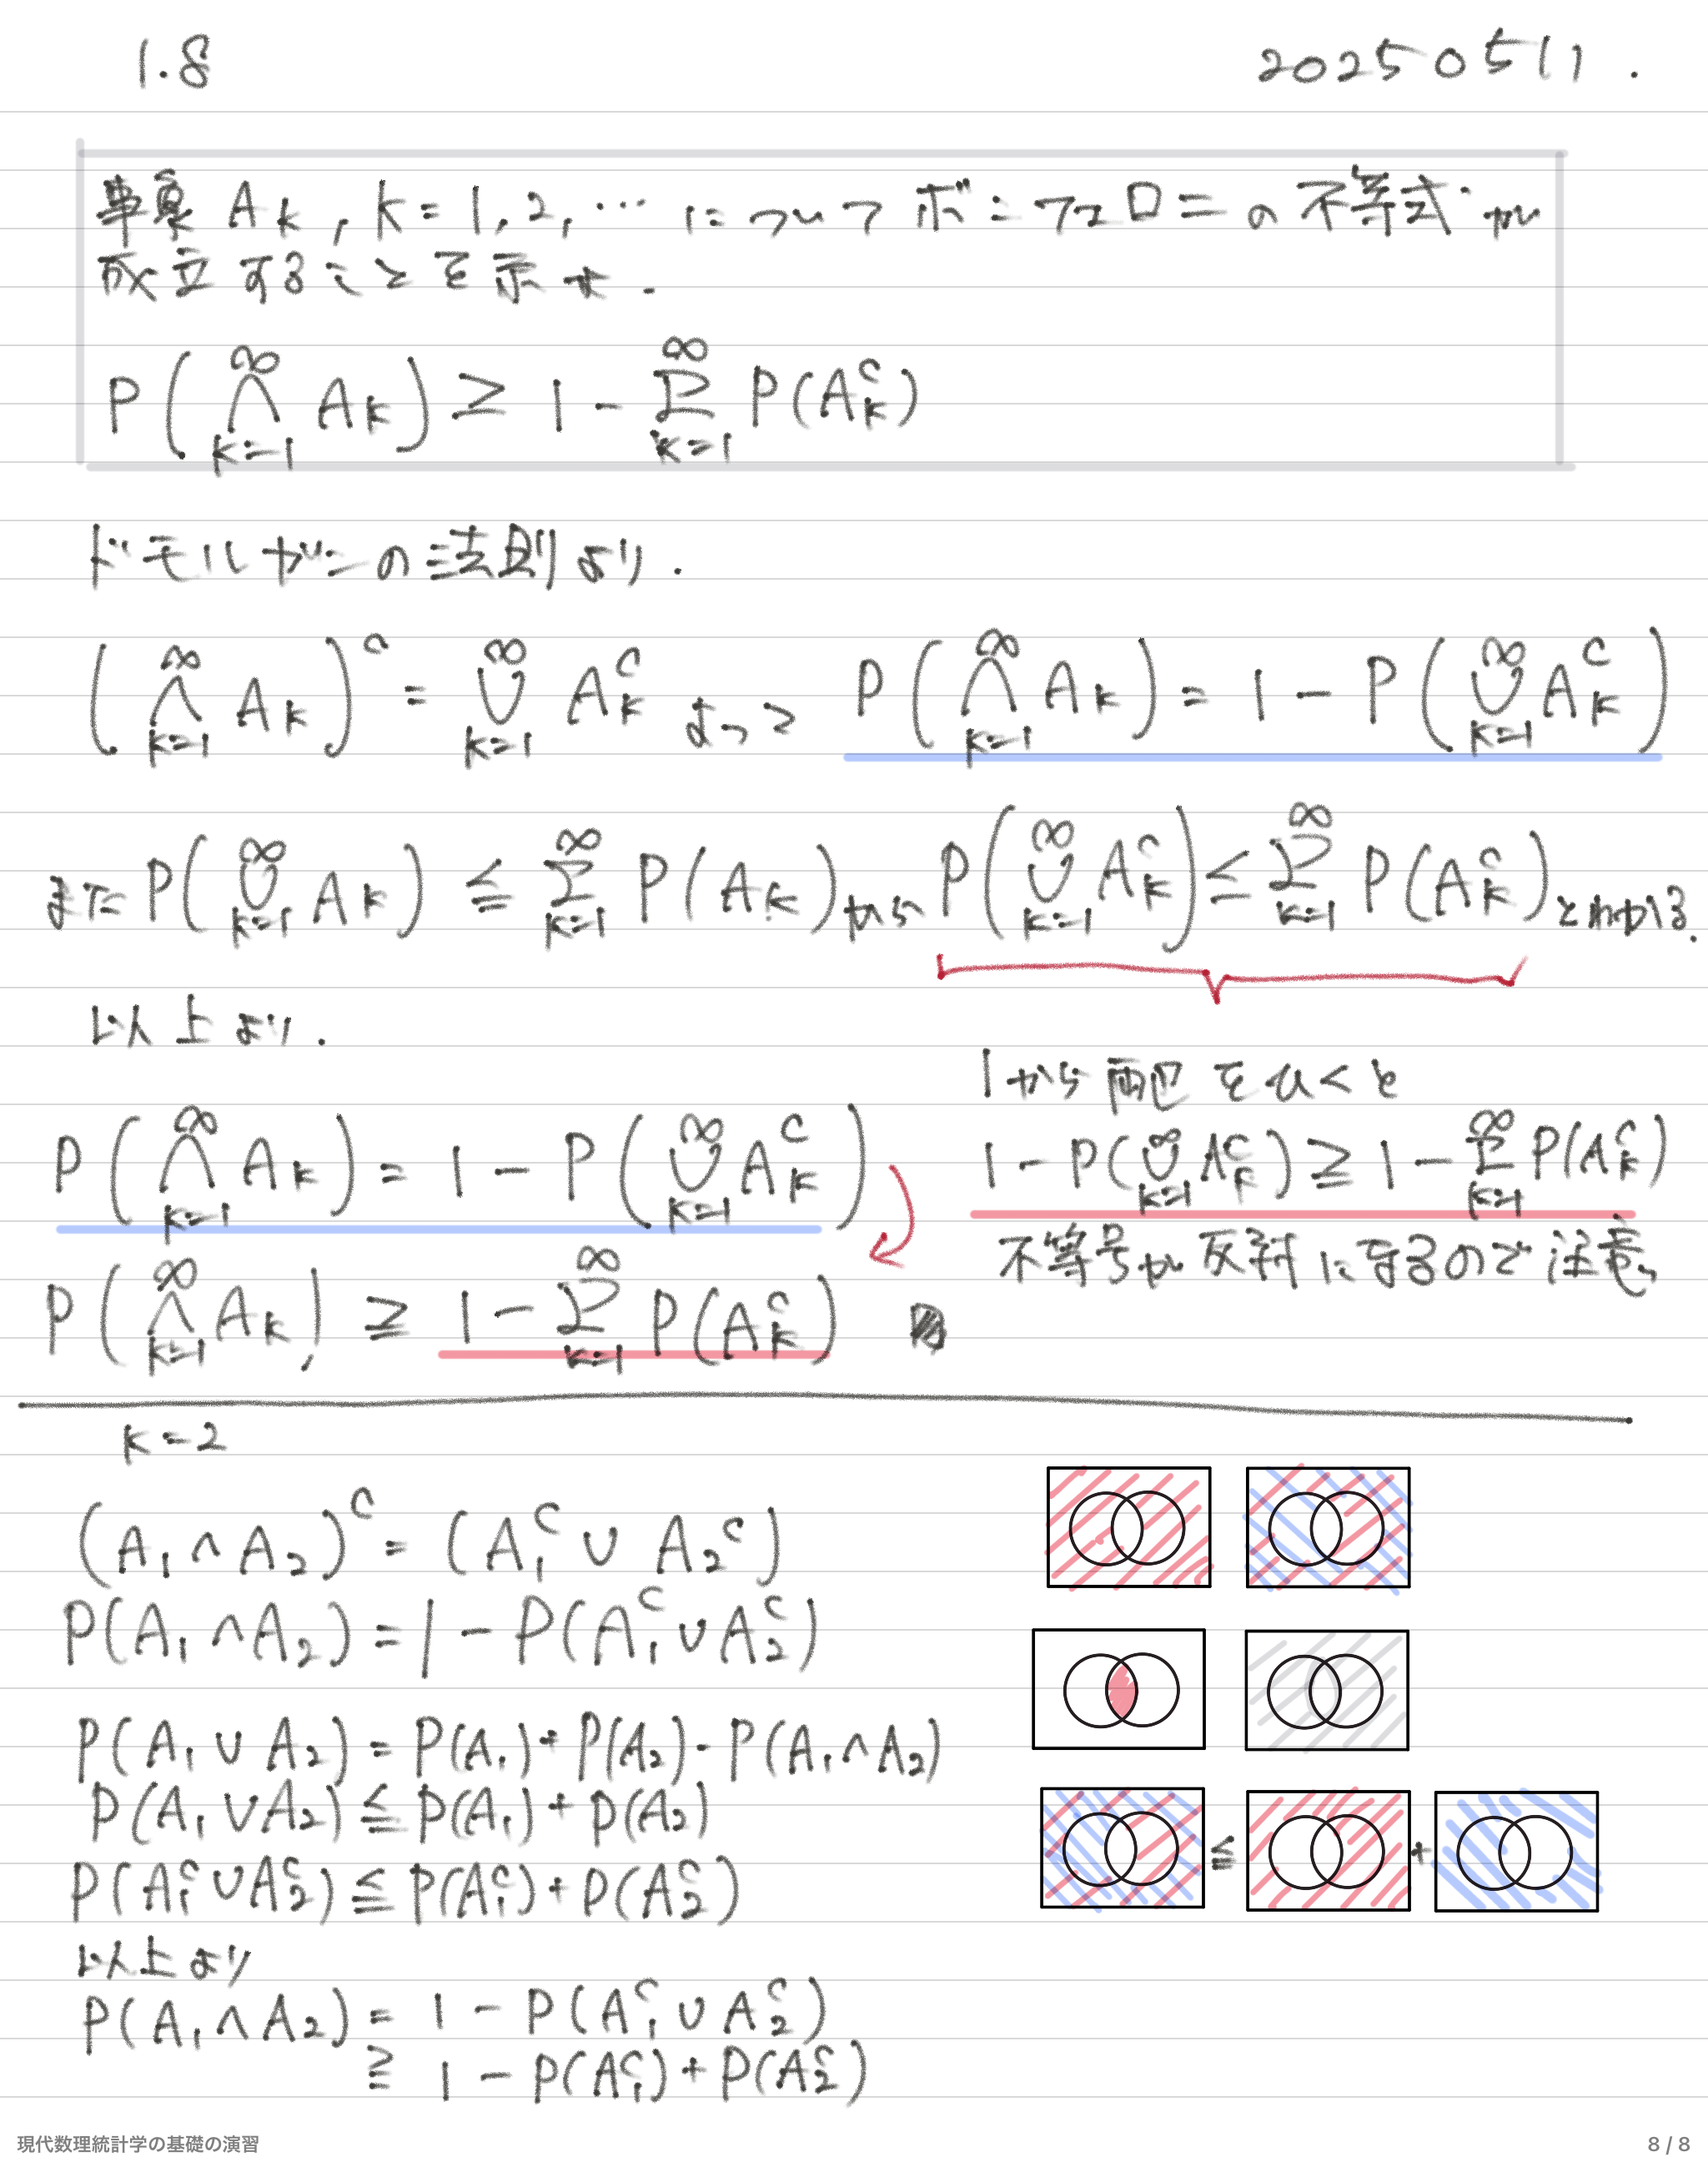 1.8
20250511.
事象 A_k, k=1,2,… について ボンフェロニの不等式が
成立することを示せ.
P(∩_{k=1}^{∞} A_k) ≥ 1 - Σ_{k=1}^{∞} P(A_k^c)
ドモルガンの法則より.
(∩_{k=1}^{∞} A_k)^c = ∪_{k=1}^{∞} A_k^c よって P(∩_{k=1}^{∞} A_k) = 1 - P(∪_{k=1}^{∞} A_k^c)
また P(∪_{k=1}^{∞} A_k) ≦ Σ_{k=1}^{∞} P(A_k) から P(∪_{k=1}^{∞} A_k^c) ≦ Σ_{k=1}^{∞} P(A_k^c) とわかる.
以上より.
P(∩_{k=1}^{∞} A_k) = 1 - P(∪_{k=1}^{∞} A_k^c)
P(∩_{k=1}^{∞} A_k) ≧ 1 - Σ_{k=1}^{∞} P(A_k^c)
1から両辺をひくと
1 - P(∪_{k=1}^{∞} A_k^c) ≧ 1 - Σ_{k=1}^{∞} P(A_k^c)
不等号が反対になるので注意
k=2
(A_1 ∩ A_2)^c = (A_1^c ∪ A_2^c)
P(A_1 ∩ A_2) = 1 - P(A_1^c ∪ A_2^c)
P(A_1 ∪ A_2) = P(A_1) + P(A_2) - P(A_1 ∩ A_2)
P(A_1 ∪ A_2) ≦ P(A_1) + P(A_2)
P(A_1^c ∪ A_2^c) ≦ P(A_1^c) + P(A_2^c)
≦ +
以上より
P(A_1 ∩ A_2) = 1 - P(A_1^c ∪ A_2^c)
≧ 1 - P(A_1^c) + P(A_2^c)
現代数理統計学の基礎の演習
8 / 8